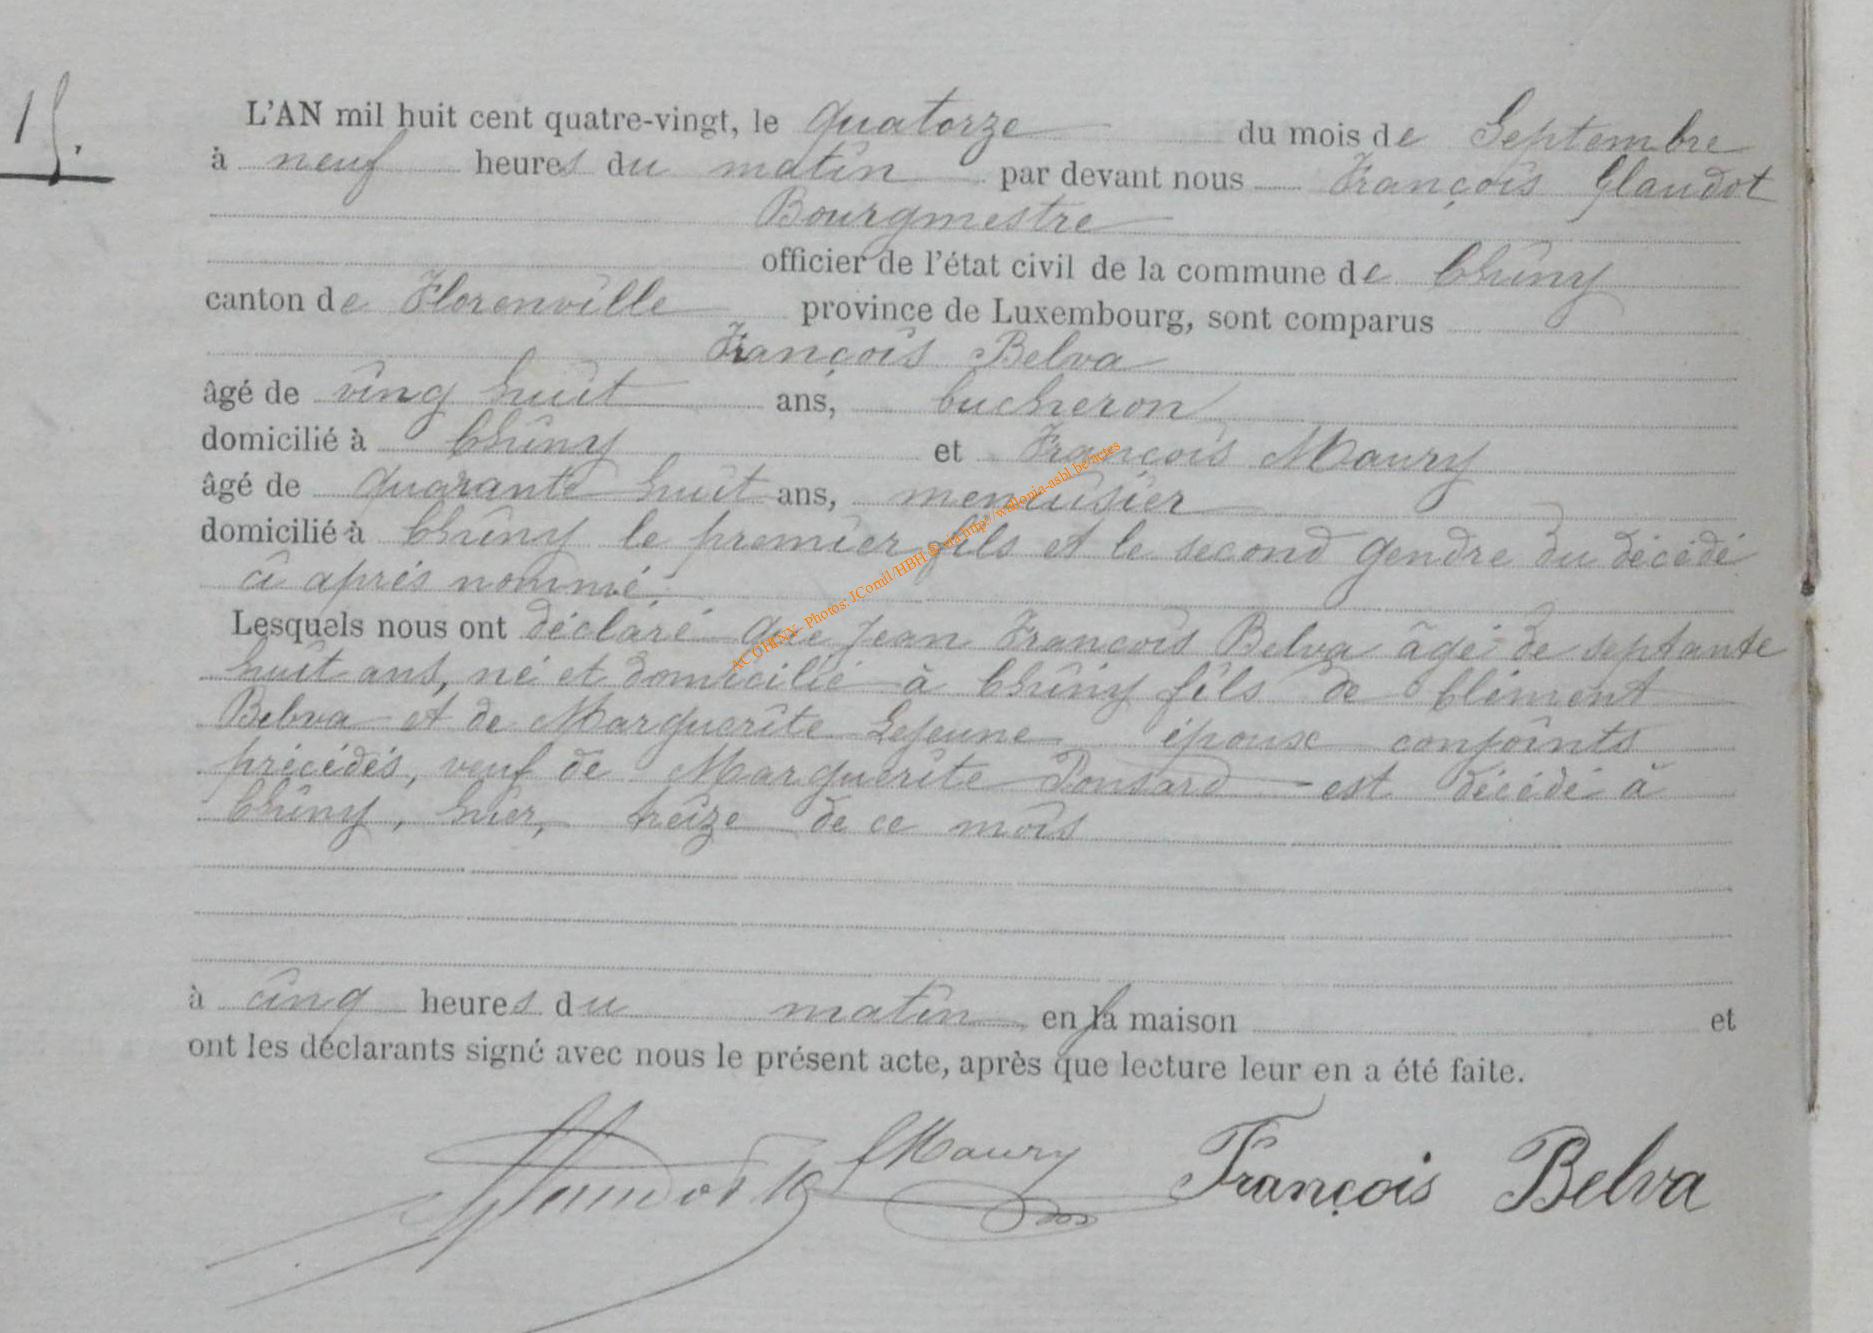 15.
L'AN mil huit cent quatre-vingt, le quatorze du mois de Septembre
à neuf heures du matin par devant nous François Glaudot
Bourgmestre
officier de l'état civil de la commune de Chiny
canton de Florenville province de Luxembourg, sont comparus
François Belva
âgé de ving huit ans, bucheron
domicilié à Chiny et François Maury
âgé de quarante huit ans, menuisier
domicilié à Chiny le premier fils et le second gendre du décédé
ci après nommé.
Lesquels nous ont déclaré que Jean François Belva âgé de septante
huit ans, né et domicilié à Chiny fils de Clément
Belva et de Marguerite Lejeune époux conjoints
précédés, veuf de Marguerite Ponsard est décédé à
Chiny, hier, treize de ce mois
à cinq heures du matin en sa maison et
ont les déclarants signé avec nous le présent acte, après que lecture leur en a été faite.
Glaudot fMaury François Belva
AC CHINY- Photos: JComil/HBH © via http://wallonia-asbl.be/actes